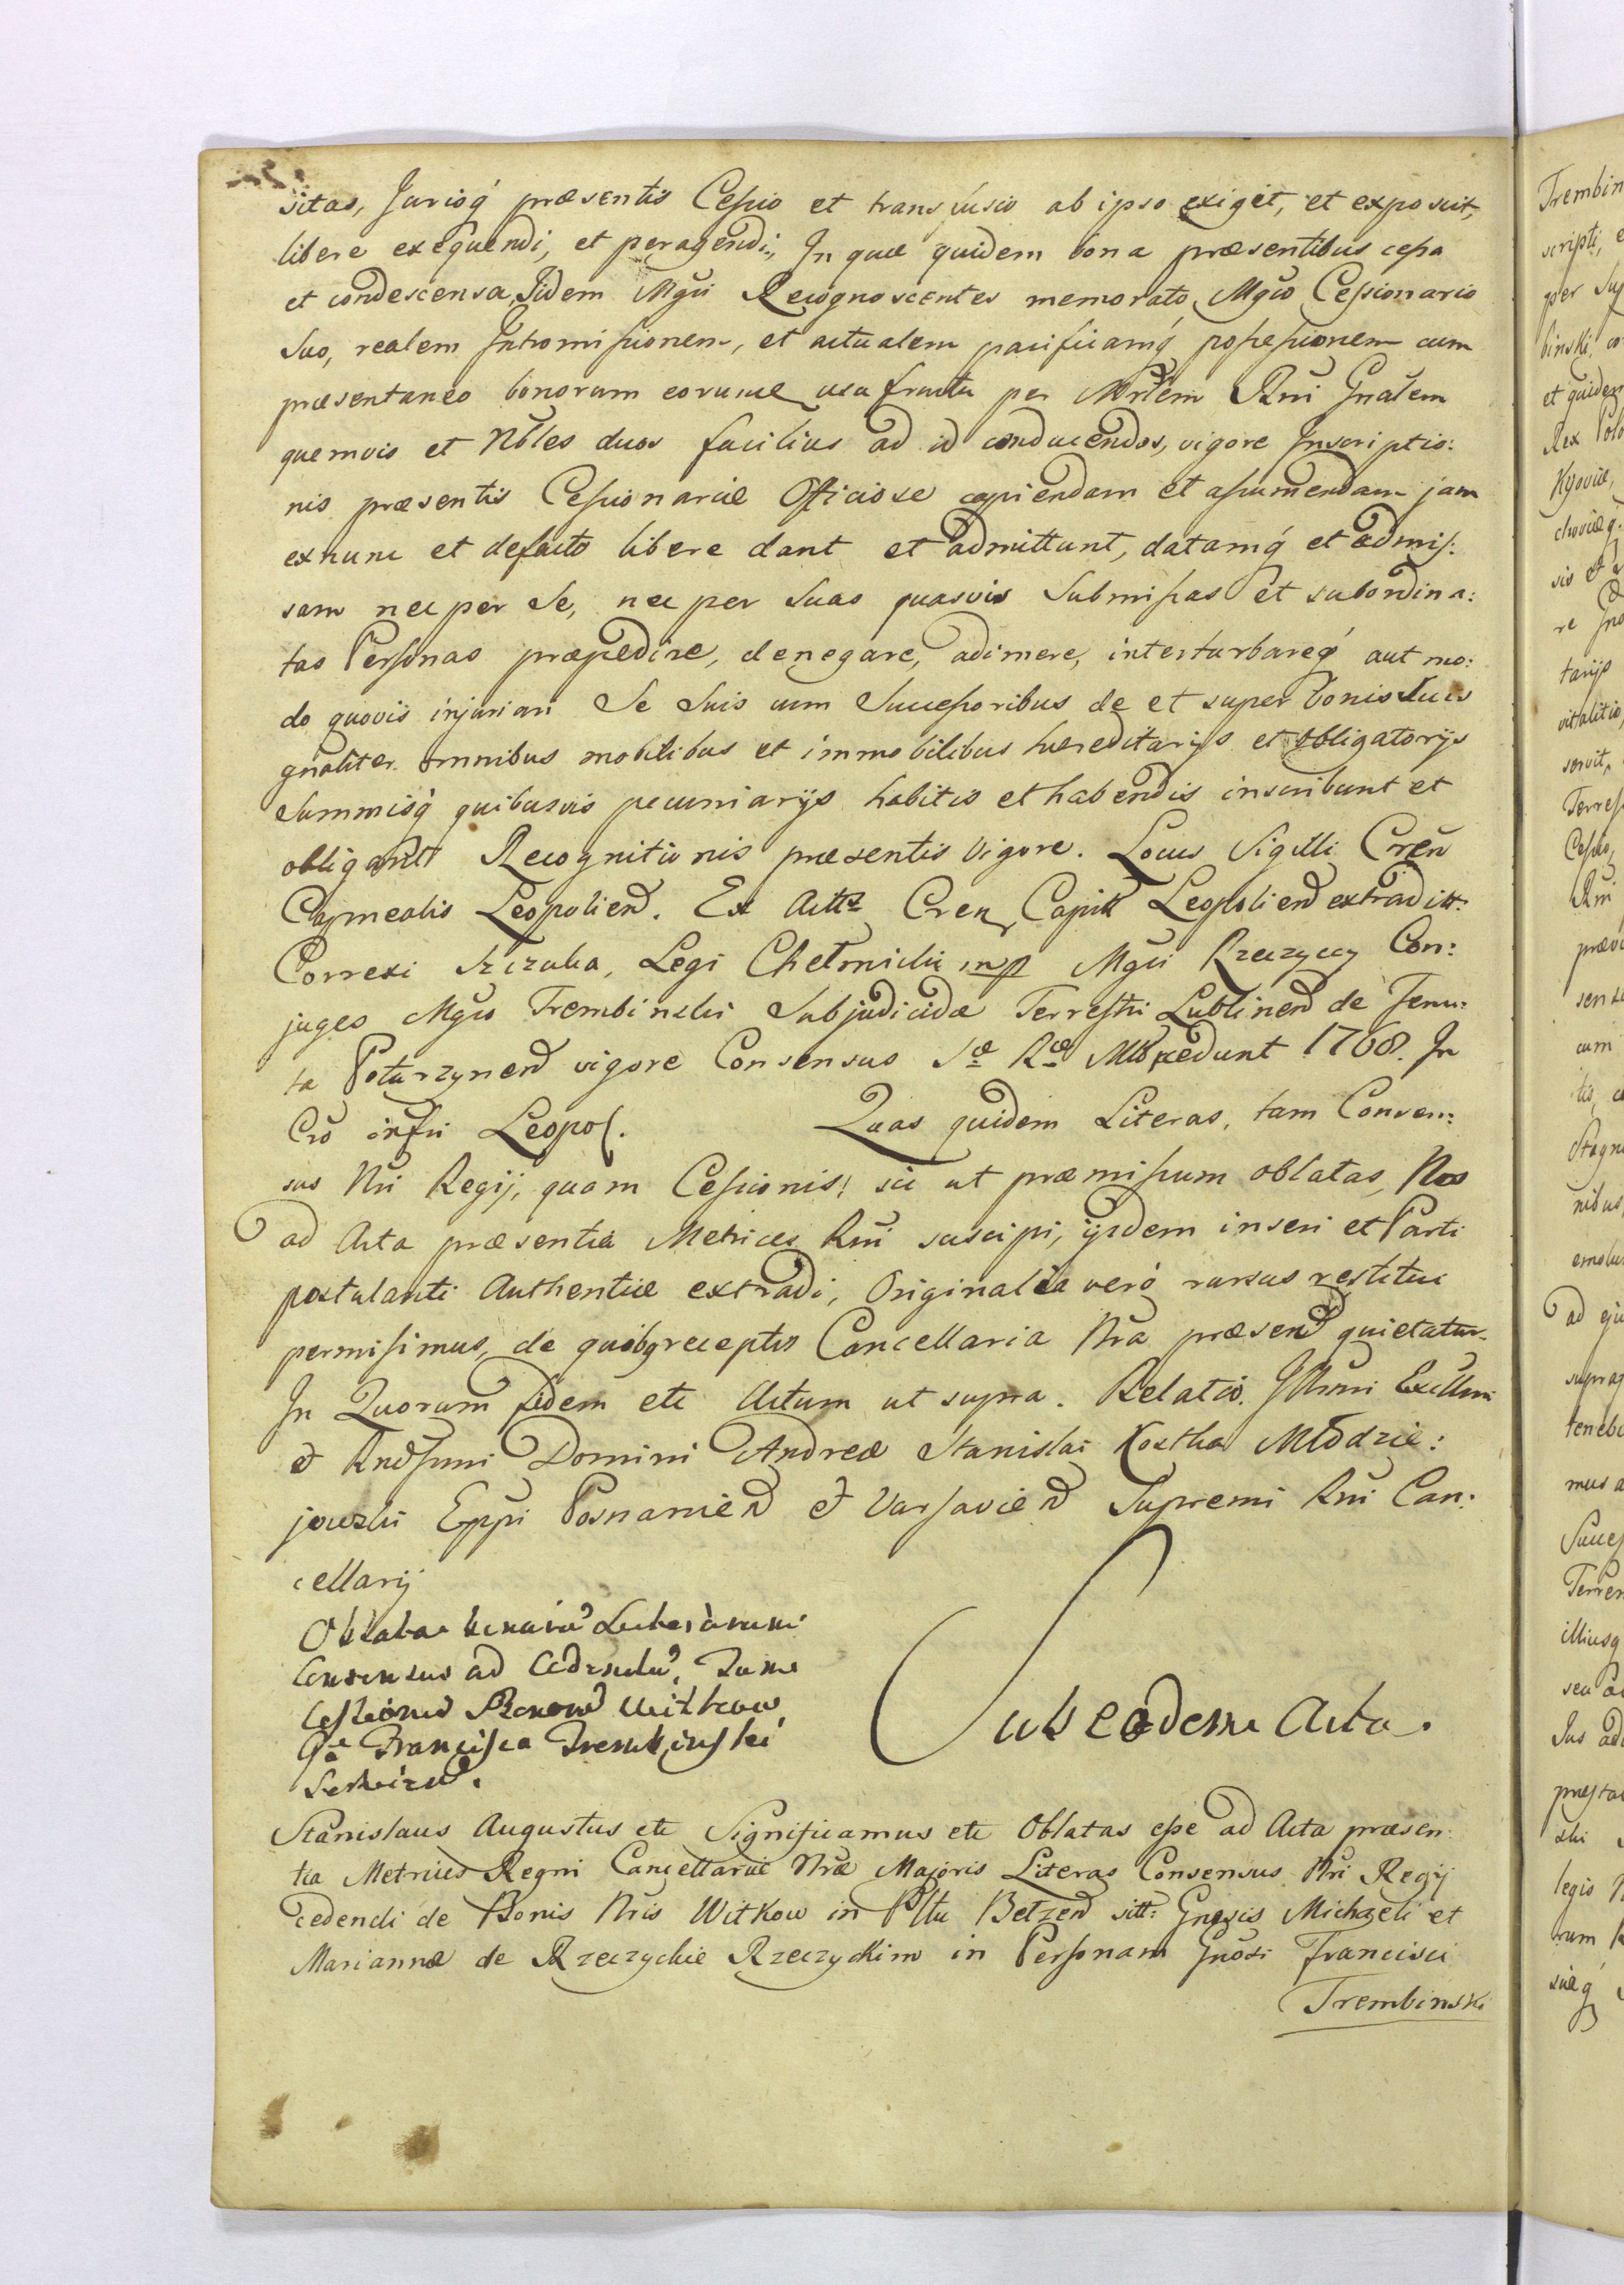 sitas, Jurisq́ præsentis Cessio et transfusio ab ipso exiget, et exposcit,
libere exequendi, et peragendi, In quæ quidem bona præsentibus cessa
et condescensa, Iidem Mgci Recognoscentes memorato Mgco Cessionario
suo, realem Intromissionem, et actualem pacificamq́ possessionem cum
præsentaneo bonorum eorumve usu fructu per Mrlem Rni Gnalem
quemvis et Nbles duos facilius ad id conducendos, vigore Inscriptio:
nis præsentis Cessionariæ Officiose capiendam et assumendam jam
exnunc et defacto libere dant et admittunt, datamq́ et admis:
sam nec per se, nec per suas quasvis Submissas et subordina:
tas Personas præpedire, denegare, adimere, interturbareq́ aut mo:
do quovis injuriari Se Suis cum Successoribus de et super bonis Suis
gnaliter omnibus mobilibus et immobilibus hæreditarijs et obligatorijs
Summisq́ quibusvis pecuniarijs habitis et habendis inscribunt et
obligant Recognitionis præsentis vigore. Locus Sigilli Cren
Capnealis Leopolien. Ex Actis Cren Capitt Leopolien extraditt:
Correxi Szczuka, Legi Chełmicki mp Mgci Rzeczyccy Con:
juges Mgco Trembinski Subjudicidæ Terrestri Lublinen de Tenu:
ta Poturzynen vigore Consensus Sæ Ræ Mttis cedunt 1768. In
Cro infri Leopol. Quas quidem Literas, tam Consen:
sus Nri Regij, quam Cessionis, sic ut præmissum oblatas, Nos
ad Acta præsentia Metrices Rni suscipi, ijsdem inseri et Parti
postulanti Authentice extradi, Originalia verò rursus restitui
permisimus, de quibg receptis Cancellaria Nra præsen quietatur.
In Quorum fidem etc Actum ut supra. Relatio Illmi Excllmi
et Rndssmi Domini Andreæ Stanislai Kostka Młodzie:
jowski Eppi Posnanien et Varsavien Supremi Rni Can:
cellarij
Oblata binaru Literarum
Consensus ad Cedendu, Tum
Cessionis Bonoru Witkow
Gso Francisco Trembinski
Servien.
Sub eadem Acta.
Stanislaus Augustus etc Significamus etc Oblatas esse ad Acta præsen:
tia Metrices Regni Cancellariæ Nræ Majoris Literas Consensus Nri Regij
cedendi de Bonis Nris Witkow in Pltu Betzen sitt: Gnosis Michaeli et
Mariannæ de Rzeczyckie Rzeczyckim in Personam Gnosi Francisci
Trembinski